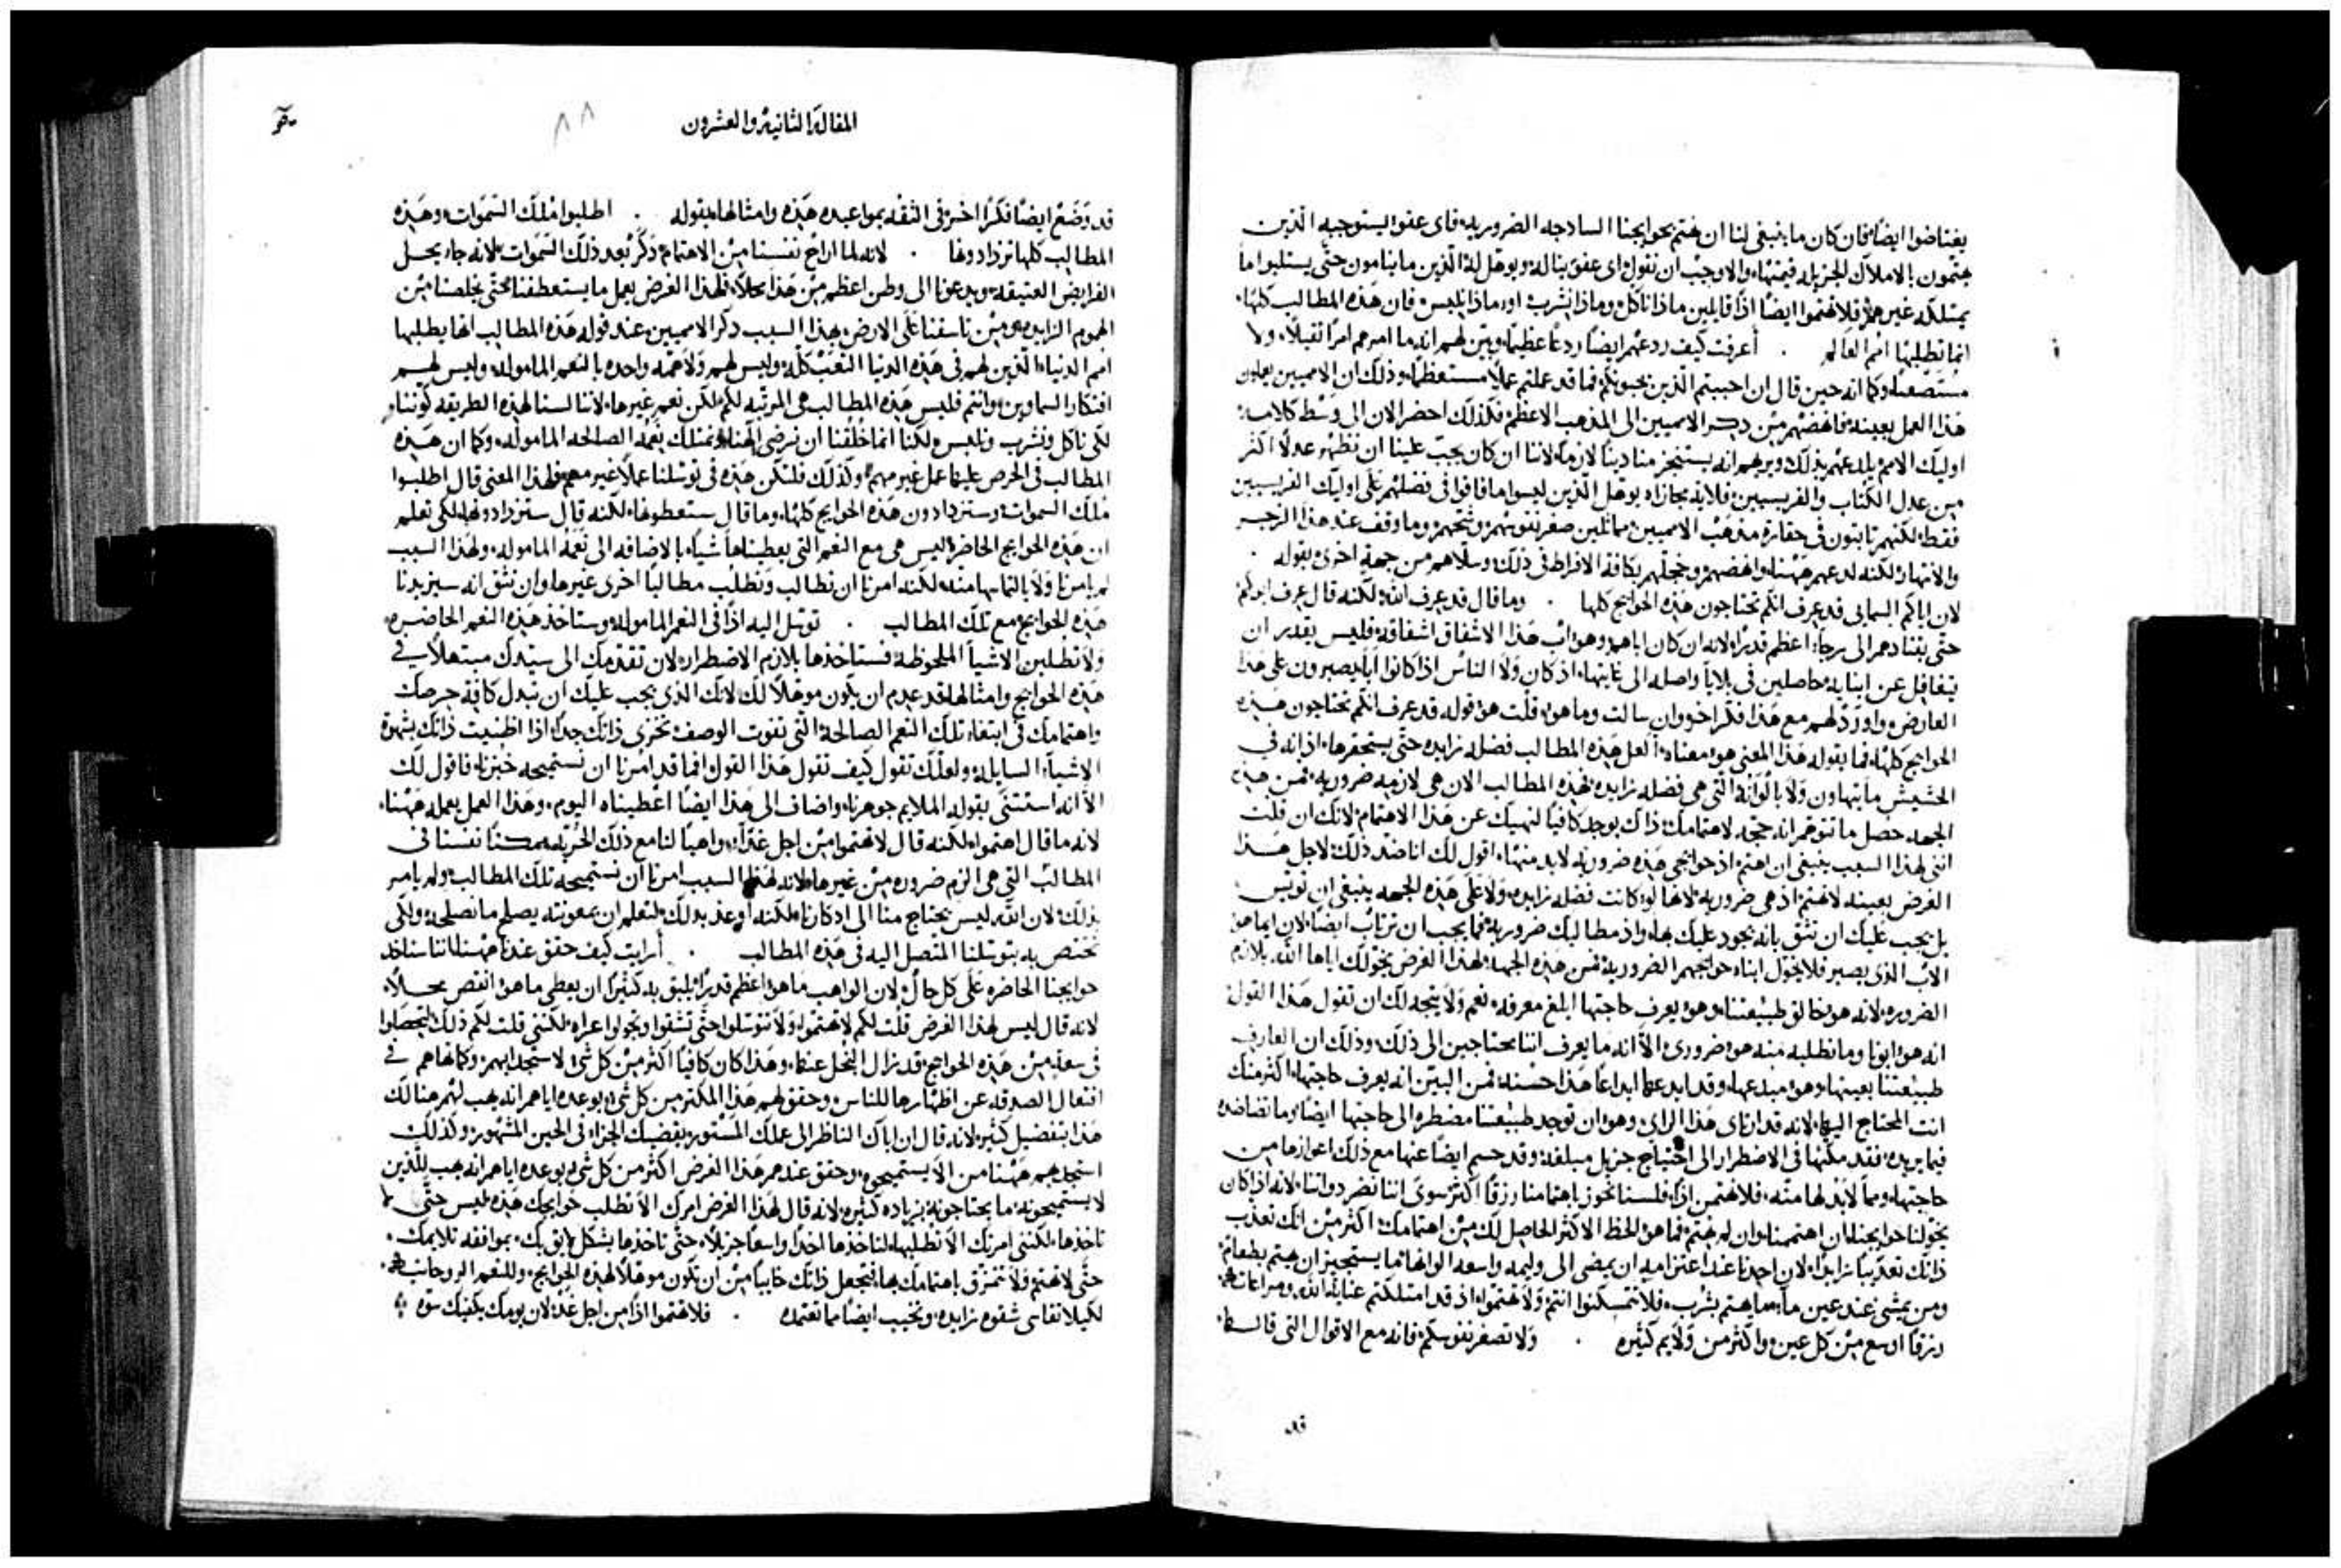 يعتاضوا ايضًا فان كان ما ينبغي لنا ان نهتم بحوايجنا الساذجه الضروريه فاي عفو يستوجبه الذين
يهتمون بالاملاك الجزيله قيمتها والاوجب ان نقول اي عفو يناله ويوهل له الذين ما ينامون حتى يستلبوا ما
يمتلكه غيرهم فلا تهتموا ايضًا اذًا قايلين ماذا ناكل وماذا نشرب او ماذا نلبس فان هذه المطالب كلها
انما تطلبها امم العالم . أعرفت كيف ردعهم ايضًا ردعًا عظيمًا وبين لهم انه ما امرهم امرًا ثقيلًا ولا
مستصعبًا وكما انه حين قال ان احببتم الذين يحبونكم فما قد عملتم عملًا مستعظمًا وذلك ان الامميين يعملون
هذا العمل بعينه فانهضهم من ذكر الامميين الى المذهب الاعظم فكذلك احضر الان الى وسط كلامه
اوليك الامم يلدعهم بذلك ويريهم انه يستنجز منا دينًا لازمًا لاننا ان كان يجب علينا ان نظهر عدلًا اكثر
من عدل الكتاب والفريسيين فلاية مجازاه يوهل الذين ليسوا ما فاقوا في فضلهم على اوليك الفريسيين
فقط لكنهم ثابتون في حقارة مذهب الامميين مماثلين صغر نفوسهم وشحهم وما وقف عند هذا الزجر
والانتهار لكنه لدعهم هاهنا وانهضهم وخجلهم بكافة الافراط في ذلك وسلاهم من جهة اخرى بقوله .
لان اباكم السمايي قد عرف انكم تحتاجون هذه الحوايج كلها . وما قال قد عرف الله لكنه قال عرف ابوكم
حتى يقتادهم الى رجاء اعظم قدرًا لانه ان كان اباهم وهو اب هذا الاشفاق اشفاقه فليس يقدر ان
يتغافل عن ابنايه حاصلين في بلايا واصله الى غايتها اذ كان ولا الناس اذا كانوا آباء يصبرون على هذا
العارض واورد لهم مع هذا فكر اخر وان سالت وما هو قلت هو قوله قد عرف انكم تحتاجون هذه
الحوايج كلها فما يقوله هذا المعنى هو معناه ألعل هذه المطالب فضله زايده حتى يستحقرها اذ انه في
الحشيش ما يتهاون ولا بالوانه التي هي فضله زايده فهذه المطالب الان هي لازمه ضروريه فمن هذه
الجهه حصل ما تتوهم انه حجه لاهتمامك ذاك يوجد كافيًا لنهيك عن هذا الاهتمام لانك ان قلت
انني لهذا السبب ينبغي ان اهتم اذ حوايجي هذه ضروريه لابد منها اقول لك انا ضد ذلك لاجل هذا
الغرض بعينه لا تهتم اذ هي ضروريه لانها لو كانت فضله زايده ولا على هذه الجهه ينبغي ان تويس
بل يجب عليك ان تثق بانه يجود عليك بها واذ مطالبك ضروريه فما يجب ان ترتاب ايضًا لان ايما هو
الاب الذي يصبر فلا يخول ابناه حوايجهم الضروريه فمن هذه الجهه لهذا الغرض يخولك اياها الله بلازم
الضروره لانه هو خالق طبيعتنا وهو يعرف حاجتها ابلغ معرفه نعم ولا يتجه لك ان تقول هذا القول
انه هو ابونا وما نطلبه منه هو ضروري الا انه ما يعرف اننا محتاجين الى ذلك وذلك ان العارف
طبيعتنا بعينها وهو مبدعها وقد ابدعها ابداعًا هذا حسنه فمن البين انه يعرف حاجتها اكثر منك
انت المحتاج اليها لانه قد ارتاى هذا الراي وهو ان توجد طبيعتنا مضطره الى حاجتها ايضًا وما تضادده
فيما يريده فقد مكنها في الاضطرار الى احتياج جزيل مبلغه وقد حسم ايضًا عنها مع ذلك اعوازها من
حاجتها ومما لابد لها منه فلا نهتمن اذًا فلسنا نحوز باهتمامنا رزقًا اكثر سوى اننا نضر ذواتنا لانه اذ كان
يخولنا حوايجنا ان اهتممنا وان لم نهتم فما هو الحظ الاكثر الحاصل لك من اهتمامك اكثر من انك تعذب
ذاتك تعذيبًا زايدًا لان احدنا عند اعتزامه ان يمضي الى وليمه واسعه الوانها ما يستجيز ان يهتم بطعام
ومن يمشي عند عين ماء ما يهتم بشرب فلا نتمسكنوا انتم ولا تهتموا اذ قد امتلكتم عناية الله ومراعاته
رزقًا اوسع من كل عين واكثر من ولايم كثيره . ولا تصغر نفوسكم فانه مع الاقوال التي قالها
قد
المقالة الثانية والعشرون
٨٨
قد وضع ايضًا فكرًا اخر في الثقه بمواعيده هذه وامثالها بقوله . اطلبوا ملك السموات وهذه
المطالب كلها تزدادونها . لانه لما اراح نفسنا من الاهتمام ذكر بعد ذلك السموات لانه جاء يحل
الفرايض العتيقه ويدعونا الى وطن اعظم من هذا محلًا فلهذا الغرض يعمل ما يستعطفنا حتى يخلصنا من
الهموم الزايده ومن تاسفنا على الارض بهذا السبب ذكر الامميين عند قوله هذه المطالب انما يطلبها
امم الدنيا الذين لهم في هذه الدنيا التعب كله وليس لهم ولا همة واحده بالنعم الماموله وليس لهم
افتكار السماوين وانتم فليس هذه المطالب هي المرتبه لكم لكن نعم غيرها لاننا لسنا لهذه الطريقه كوننا
لكي ناكل ونشرب ونلبس لكنا انما خلقنا ان نرضي الهنا ونمتلك نعمه الصالحه الماموله وكما ان هذه
المطالب في الحرص عليها عمل غير مهم وكذلك فلتكن هذه في توسلنا عملًا غير مهم فلهذا المعنى قال اطلبوا
ملك السموات وستزدادون هذه الحوايج كلها وما قال ستعطونها لكنه قال ستزدادونها لكي تعلم
ان هذه الحوايج الحاضرة ليس هي مع النعم التي يعطيناها شيًا بالاضافه الى نعمه الماموله ولهذا السبب
لم يامرنا ولا بالتماسها منه لكنه امرنا ان نطالب ونطلب مطالبًا اخرى غيرها وان نثق انه سيزيدنا
هذه الحوايج مع تلك المطالب . توسل اليه اذًا في النعم الماموله وستاخذ هذه النعم الحاضره
ولا تطلبن الاشيا الملحوظة فستاخذها بلازم الاضطرار لان تقدمك الى سيدك مبتهلًا في
هذه الحوايج وامثالها قد عدم ان يكون موهلًا لك لانك الذي يجب عليك ان تبدل كافة حرصك
واهتمامك في ابتغاء تلك النعم الصالحة التي تفوت الوصف تخزي ذاتك جدًا اذا اظنيت ذاتك بشهوة
الاشياء السايله ولعلك تقول كيف تقول هذا القول افما قد امرنا ان نستميحه خبزنا فاقول لك
الا انه استثنى بقوله الملايم جوهرنا واضاف الى هذا ايضًا اعطيناه اليوم وهذا العمل بعمله هاهنا
لانه ما قال اهتموا لكنه قال لا تهتموا من اجل غدًا واهبًا لنا مع ذلك الحريه ممكنًا نفسنا في
المطالب التي هي الزم ضروره من غيرها لانه لهذا السبب امرنا ان نستميحه تلك المطالب ولم يامر
بذلك لان الله ليس يحتاج منا الى ادكارنا لكنه اوعز بذلك لنعلم ان بمعونته يصلح ما نصلحه ولكي
نختص به بتوسلنا المتصل اليه في هذه المطالب . أرايت كيف حقق عندنا هاهنا اننا سناخذ
حوايجنا الحاضره على كل حال لان الواهب ما هو اعظم قدرًا يليق به كثيرًا ان يعطي ما هو انقص محلًا
لانه قال ليس لهذا الغرض قلت لكم لا تهتموا ولا تتوسلوا حتى تشقوا وتجولوا عراه لكنني قلت لكم ذلك لتحصلوا
في سعة من هذه الحوايج قد يزال البخل عنكم وهذا كان كافيًا اكثر من كل شيء لاستجذابهم وكما نهاهم في
افتعال الصدقه عن اظهارها للناس وحقق لهم هذا المكثر من كل شيء بوعده اياهم انه يهب لهم هنالك
هذا بتفضيل كثير لانه قال ان اباك الناظر الى عملك المستور يقضيك الجزاء في الحين المشهور وكذلك
استجذبهم هاهنا من الا يستميحوه وحقق عندهم هذا الغرض اكثر من كل شيء بوعده اياهم انه يهب للذين
لا يستميحونه ما يحتاجونه بزياده كثيره لانه قال لهذا الغرض امرك الا تطلب حوايجك هذه ليس حتى لا
تاخذها لكنني امرتك الا تطلبها لتاخذها اخذًا واسعًا جزيلًا حتى تاخذها بشكل لايق بك بموافقه تلايمك
حتى لا تهتم ولا تتمزق باهتمامك بها فتجعل ذاتك خايبًا من ان تكون موهلًا لهذه الحوايج وللنعم الروحانيه
لكيلا تقاسي شقوه زايده وتخيب ايضًا مما تعتمده . فلا تهتموا اذًا من اجل غد لان يومك يكفيك سوه